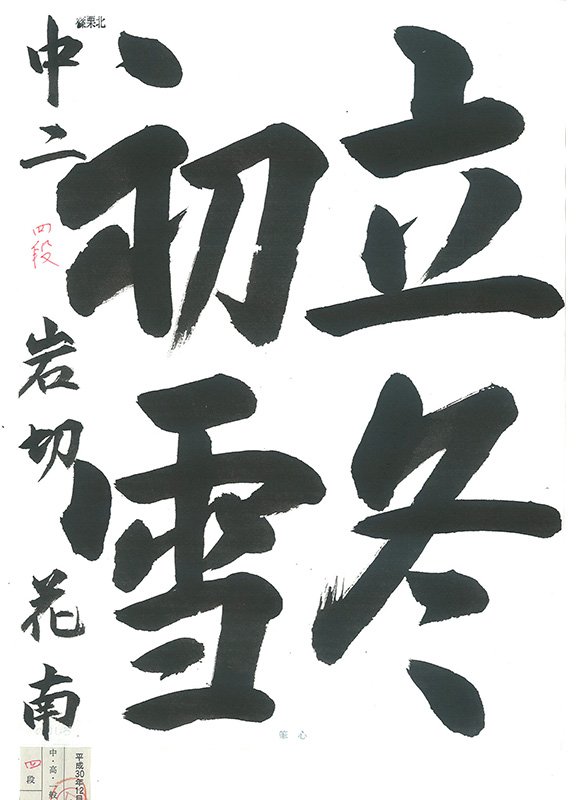 立冬
初雪
中二 四段 岩切花南
北栗
心筆
平成30年12月
中・高・一般
四段